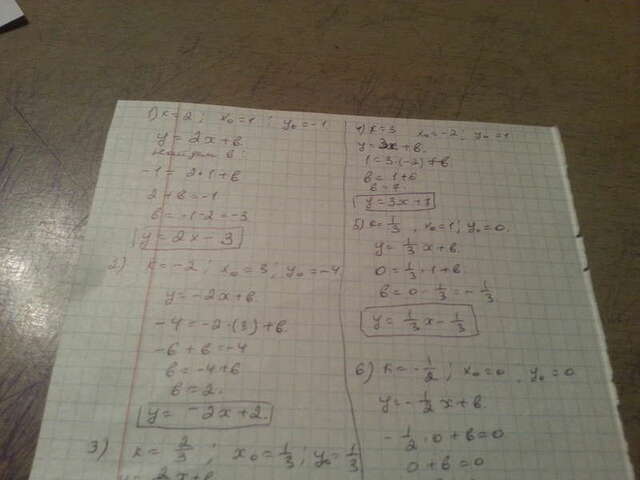 1) k=2; x₀=1; y₀=-1
y=2x+в.
найдём в:
-1=2·1+в
2+в=-1
в=-1-2=-3
y=2x-3
2) k=-2; x₀=3; y₀=-4
y=-2x+в.
-4=-2·(3)+в
-6+в=-4
в=-4+6
в=2.
y=-2x+2.
3) k=2/3; x₀=1/3; y₀=1/3
4) k=3 x₀=-2; y₀=1
y=3x+в.
1=3·(-2)+в
в=1+6
в=7.
y=3x+7
5) k=1/3, x₀=1; y₀=0.
y=1/3x+в.
0=1/3·1+в.
в=0-1/3=-1/3
y=1/3x-1/3
6) k=-1/2; x₀=0, y₀=0
y=-1/2x+в.
-1/2·0+в=0
0+в=0